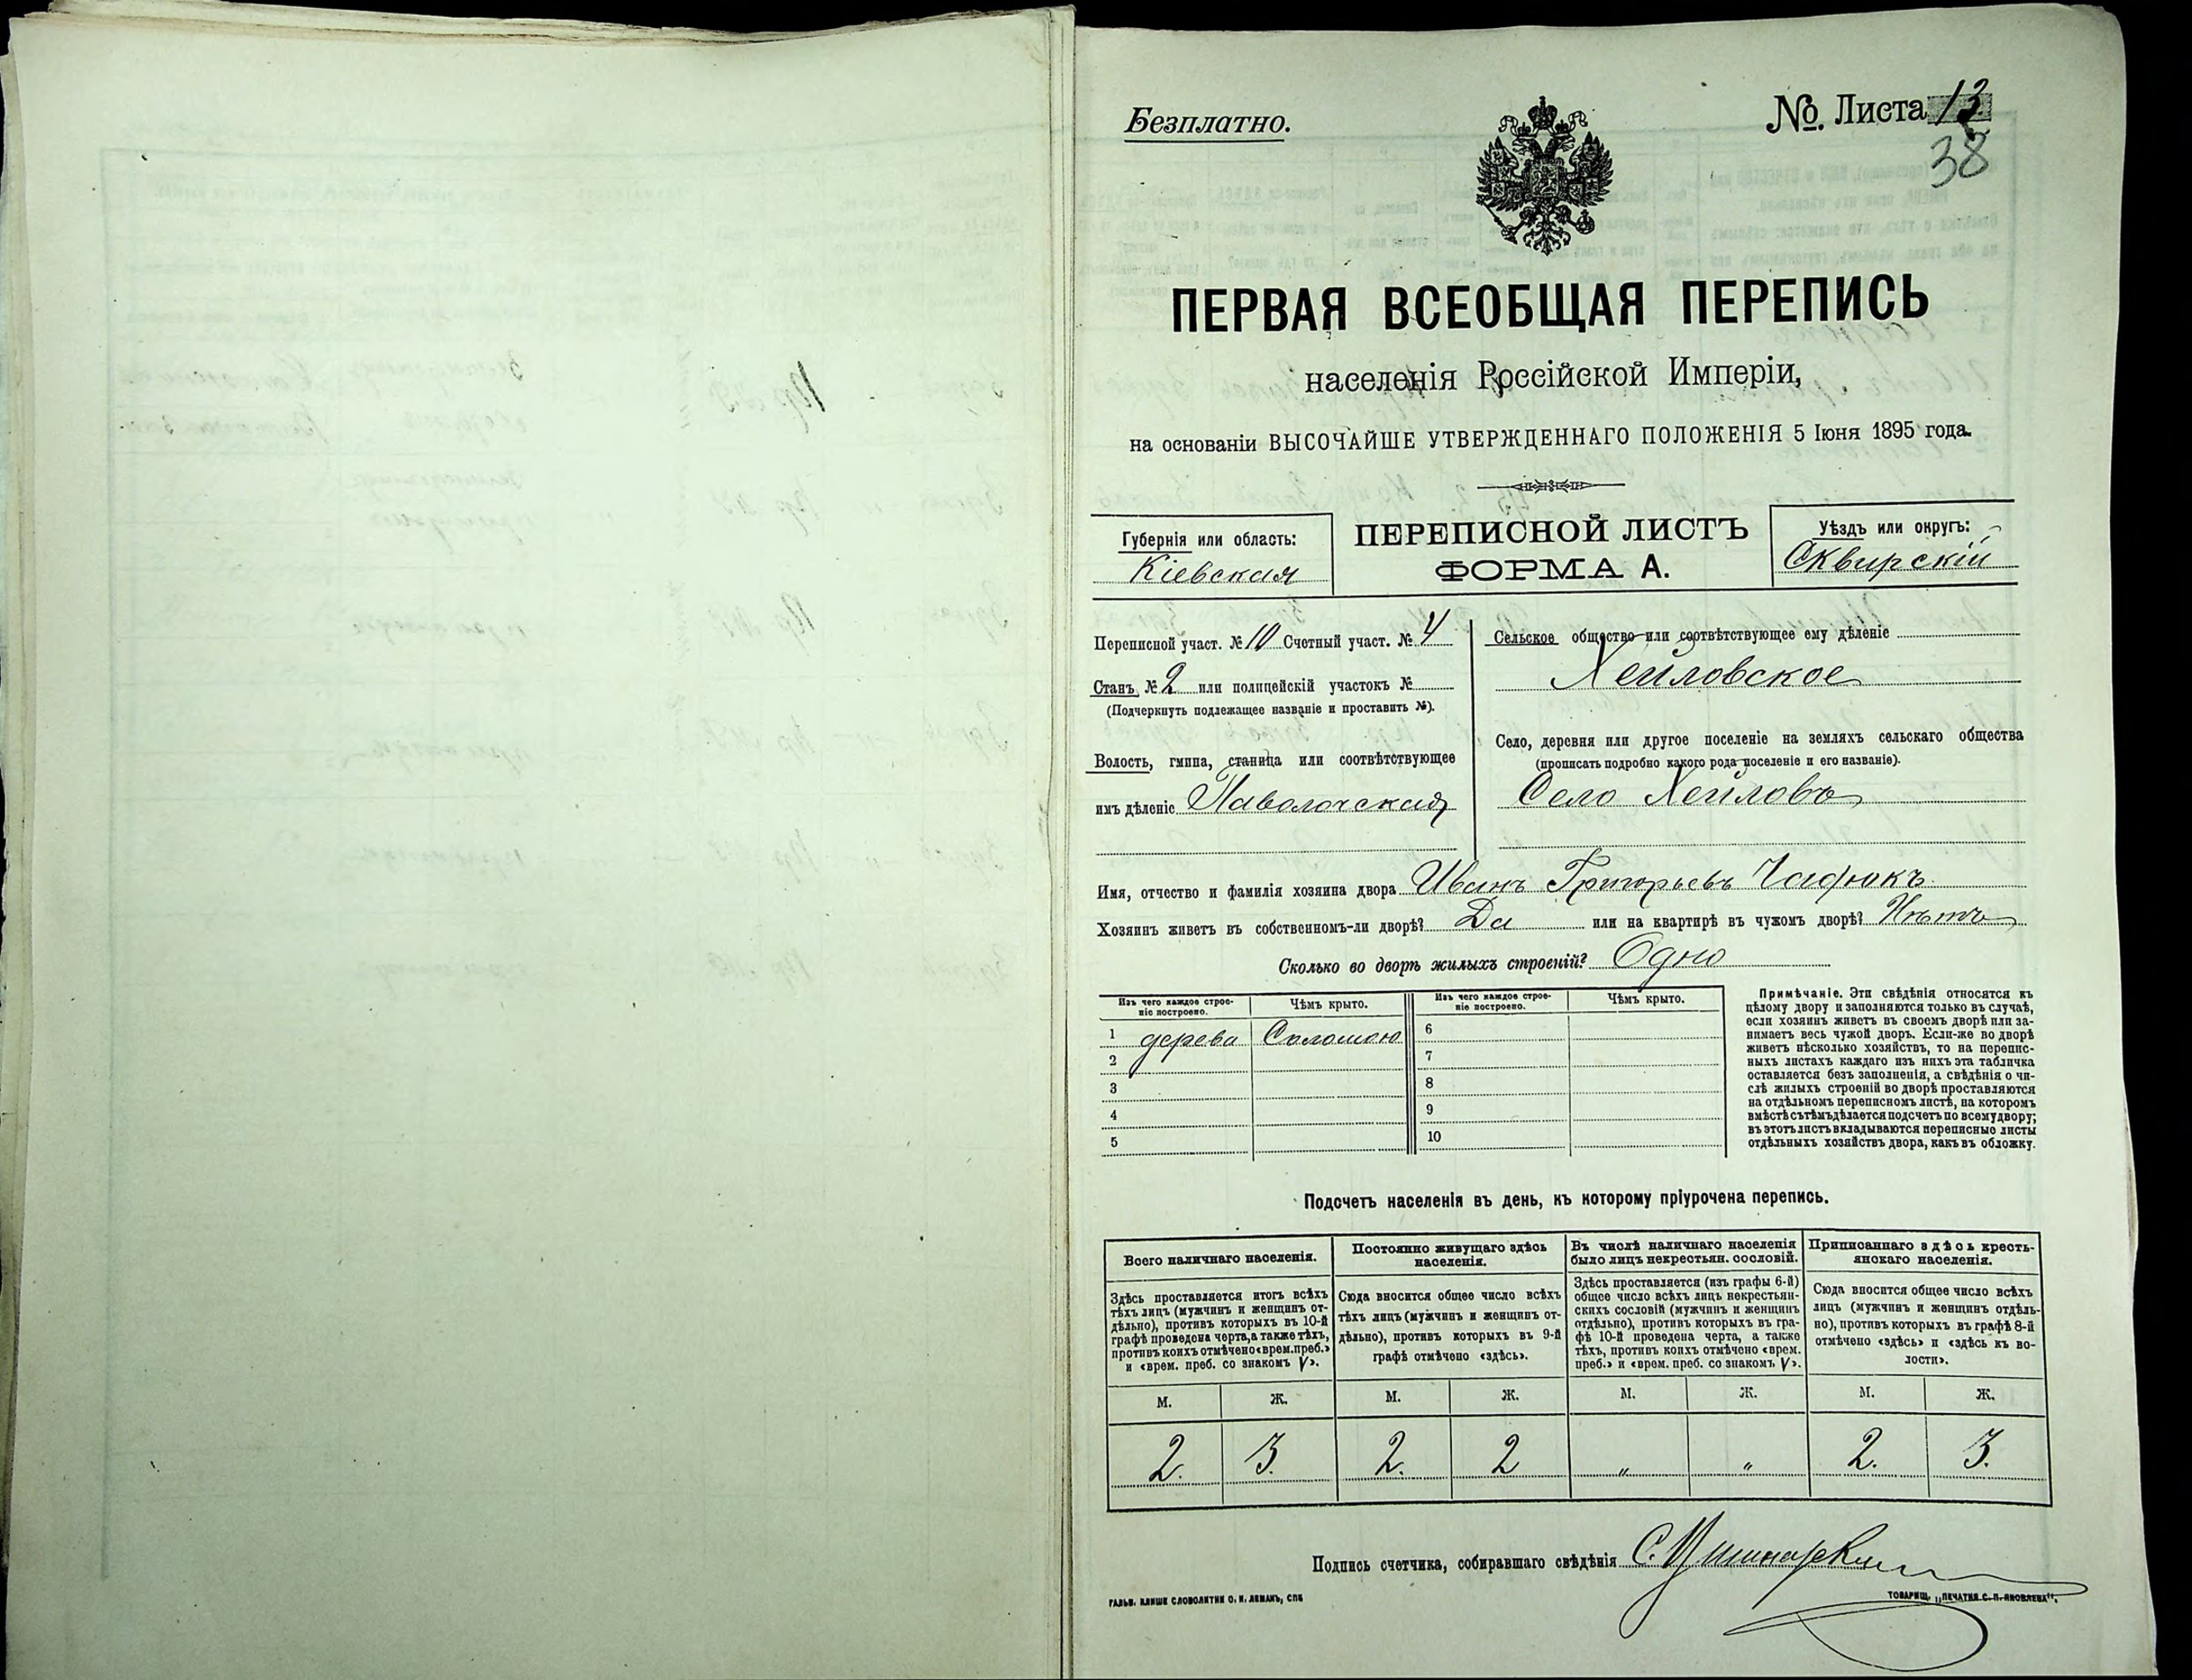 Безплатно.
№ Листа 13.
38
ПЕРВАЯ ВСЕОБЩАЯ ПЕРЕПИСЬ
населенія Россійской Имперіи,
на основаніи ВЫСОЧАЙШЕ УТВЕРЖДЕННАГО ПОЛОЖЕНІЯ 5 Іюня 1895 года.
Губернія или область:
Кіевская
ПЕРЕПИСНОЙ ЛИСТЪ
ФОРМА А.
Уѣздъ или округъ:
Сквирскій
Переписной участ. № 10 Счетный участ. № 4
Станъ № 2 или полицейскій участокъ №
(Подчеркнуть подлежащее названіе и проставить №).
Волость, гмина, станица или соотвѣтствующее
имъ дѣленіе Паволочская
Сельское общество или соотвѣтствующее ему дѣленіе
Хейловское
Село, деревня или другое поселеніе на земляхъ сельскаго общества
(прописать подробно какого рода поселеніе и его названіе).
Село Хейловъ
Имя, отчество и фамилія хозяина двора Иванъ Григорьевъ
Хозяинъ живетъ въ собственномъ-ли дворѣ? Да или на квартирѣ въ чужомъ дворѣ? Нѣтъ
Сколько во дворѣ жилыхъ строеній? Одно
Изъ чего каждое строе-
ніе построено.
Чѣмъ крыто.
Изъ чего каждое строе-
ніе построено.
Чѣмъ крыто.
1 дерева Соломою 6
2 7
3 8
4 9
5 10
Примѣчаніе. Эти свѣдѣнія относятся къ
цѣлому двору и заполняются только въ случаѣ,
если хозяинъ живетъ въ своемъ дворѣ или за-
нимаетъ весь чужой дворъ. Если-же во дворѣ
живетъ нѣсколько хозяйствъ, то на перепис-
ныхъ листахъ каждаго изъ нихъ эта табличка
оставляется безъ заполненія, а свѣдѣнія о чи-
слѣ жилыхъ строеній во дворѣ проставляются
на отдѣльномъ переписномъ листѣ, на которомъ
вмѣстѣ съ тѣмъ дѣлается подсчетъ по всему двору;
въ этотъ листъ вкладываются переписные листы
отдѣльныхъ хозяйствъ двора, какъ въ обложку.
Подсчетъ населенія въ день, къ которому пріурочена перепись.
Всего наличнаго населенія.
Здѣсь проставляется итогъ всѣхъ
тѣхъ лицъ (мужчинъ и женщинъ от-
дѣльно), противъ которыхъ въ 10-й
графѣ проведена черта, а также тѣхъ,
противъ коихъ отмѣчено «врем. преб.»
и «врем. преб. со знакомъ V».
Постоянно живущаго здѣсь
населенія.
Сюда вносится общее число всѣхъ
тѣхъ лицъ (мужчинъ и женщинъ от-
дѣльно), противъ которыхъ въ 9-й
графѣ отмѣчено «здѣсь».
Въ числѣ наличнаго населенія
было лицъ некрестьян. сословій.
Здѣсь проставляется (изъ графы 6-й)
общее число всѣхъ лицъ некрестьян-
скихъ сословій (мужчинъ и женщинъ
отдѣльно), противъ которыхъ въ гра-
фѣ 10-й проведена черта, а также
тѣхъ, противъ коихъ отмѣчено «врем.
преб.» и «врем. преб. со знакомъ V».
Приписаннаго здѣсь кресть-
янскаго населенія.
Сюда вносится общее число всѣхъ
лицъ (мужчинъ и женщинъ отдѣль-
но), противъ которыхъ въ графѣ 8-й
отмѣчено «здѣсь» и «здѣсь къ во-
лости».
М. Ж. М. Ж. М. Ж. М. Ж.
2. 3. 2. 2 " " 2. 3.
Подпись счетчика, собиравшаго свѣдѣнія С.
ГАЛЬВ. КЛИШЕ СЛОВОЛИТНИ О. И. ЛЕМАНЪ, СПБ
ТОВАРИЩ. „ПЕЧАТНЯ С. П. ЯКОВЛЕВА".